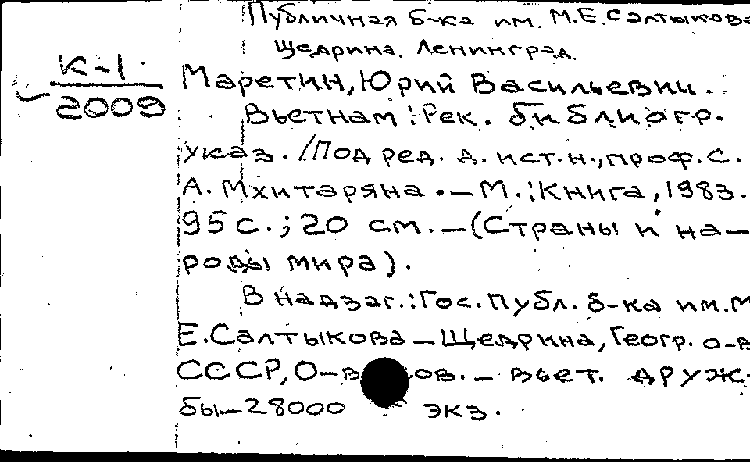 Публичная б-ка им. М.Е.Салтыкова
Щедрина. Ленинград.
К-1.
2009
Маретин, Юрий Васильевич.
Вьетнам : Рек. библиогр.
указ. / Под ред. д. ист. н., проф. С.
А. Мхитаряна. — М. : Книга, 1983.
95 с. ; 20 см. — (Страны и на-
роды мира).
В надзаг.: Гос. публ. б-ка им. М
Е. Салтыкова — Щедрина, Геогр. о-в
СССР, О-в ов. — вьет. друж-
бы — 28000 экз.